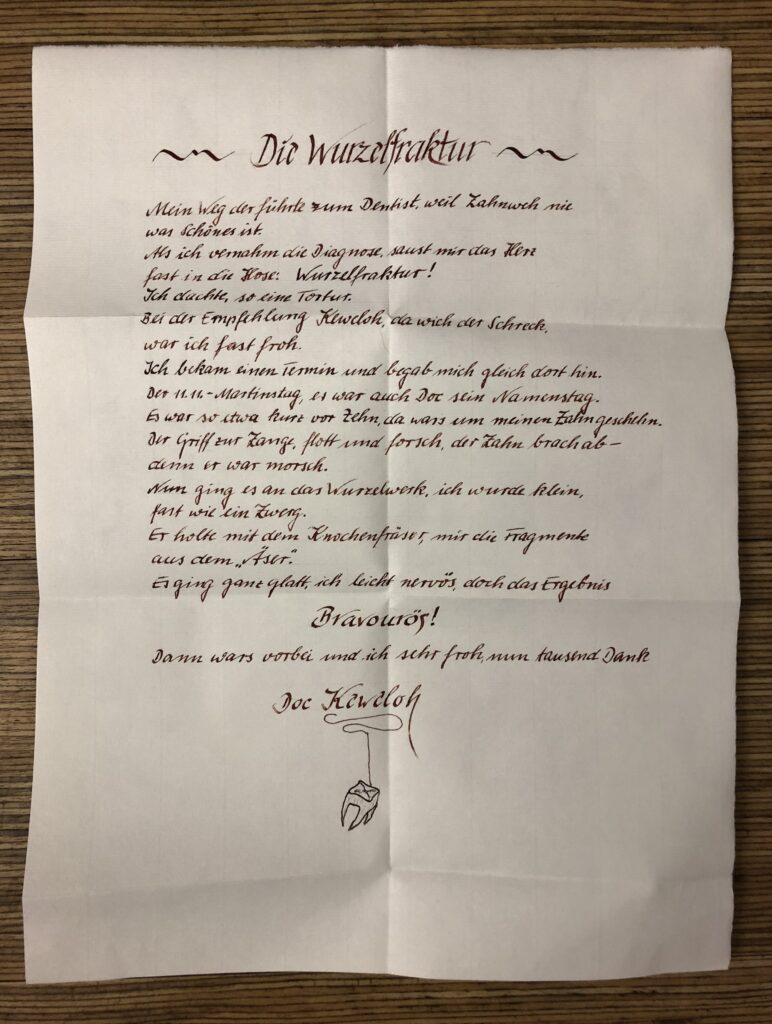 Die Wurzelfraktur
Mein Weg der führte zum Dentist, weil Zahnweh nie
was Schönes ist.
Als ich vernahm die Diagnose, saust mir das Herz
fast in die Hose: Wurzelfraktur!
Ich dachte, so eine Tortur.
Bei der Empfehlung Keweloh, da wich der Schreck,
war ich fast froh.
Ich bekam einen Termin und begab mich gleich dort hin.
Der 11.11.-Martinstag, es war auch Doc sein Namenstag.
Es war so etwa kurz vor Zehn, da wars um meinen Zahn geschehn.
Der Griff zur Zange, flott und forsch, der Zahn brach ab –
denn er war morsch.
Nun ging es an das Wurzelwerk, ich wurde klein,
fast wie ein Zwerg.
Er holte mit dem Knochenfräser, mir die Fragmente
aus dem „Äser“.
Es ging ganz glatt, ich leicht nervös, doch das Ergebnis
Bravourös!
Dann wars vorbei und ich sehr froh, nun tausend Dank
Doc Keweloh